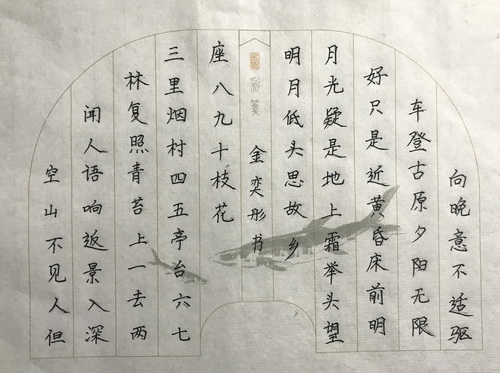 向晚意不适驱
车登古原夕阳无限
好只是近黄昏床前明
月光疑是地上霜举头望
明月低头思故乡
空山不见人但
闻人语响返景入深
林复照青苔上一去两
三里烟村四五亭台六七
座八九十枝花
金奕彤书